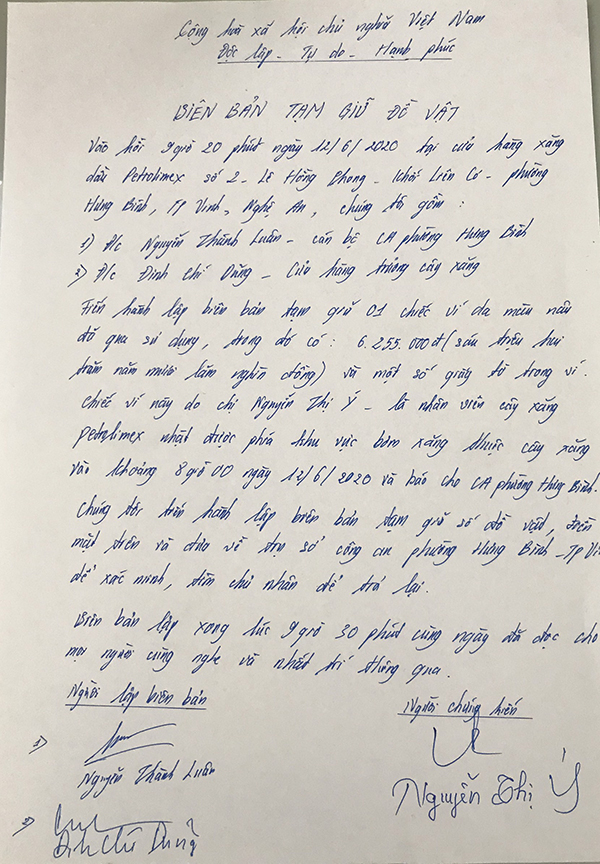 Công hoà xã hội chủ nghĩa Việt Nam
Độc lập - Tự do - Hạnh phúc
BIÊN BẢN TẠM GIỮ ĐỒ VẬT
Vào hồi 9 giờ 20 phút ngày 12/6/2020 tại cửa hàng xăng
dầu Petrolimex số 2 - Lê Hồng Phong - Khối Liên Cơ - phường
Hưng Bình, TP Vinh, Nghệ An, chúng tôi gồm :
1) Đ/c Nguyễn Thành Luân - cán bộ CA phường Hưng Bình
2) Đ/c Đinh Chí Dũng - Cửa hàng trưởng cây xăng
Tiến hành lập biên bản tạm giữ 01 chiếc ví da màu nâu
đã qua sử dụng, trong đó có : 6.255.000đ (sáu triệu hai
trăm năm mươi lăm nghìn đồng) và một số giấy tờ trong ví.
Chiếc ví này do chị Nguyễn Thị Ý - là nhân viên cây xăng
Petrolimex nhặt được phía khu vực bơm xăng thuộc cây xăng
vào khoảng 8 giờ 00 ngày 12/6/2020 và báo cho CA phường Hưng Bình.
Chúng tôi tiến hành lập biên bản tạm giữ số đồ vật, tiền
mặt trên và đưa về trụ sở công an phường Hưng Bình - TP Vi
để xác minh, tìm chủ nhân để trả lại.
Biên bản lập xong lúc 9 giờ 30 phút cùng ngày đã đọc cho
mọi người cùng nghe và nhất trí thông qua.
Người lập biên bản
Người chứng kiến
1)
Nguyễn Thành Luân
Nguyễn Thị Ý
2)
Đinh Chí Dũng